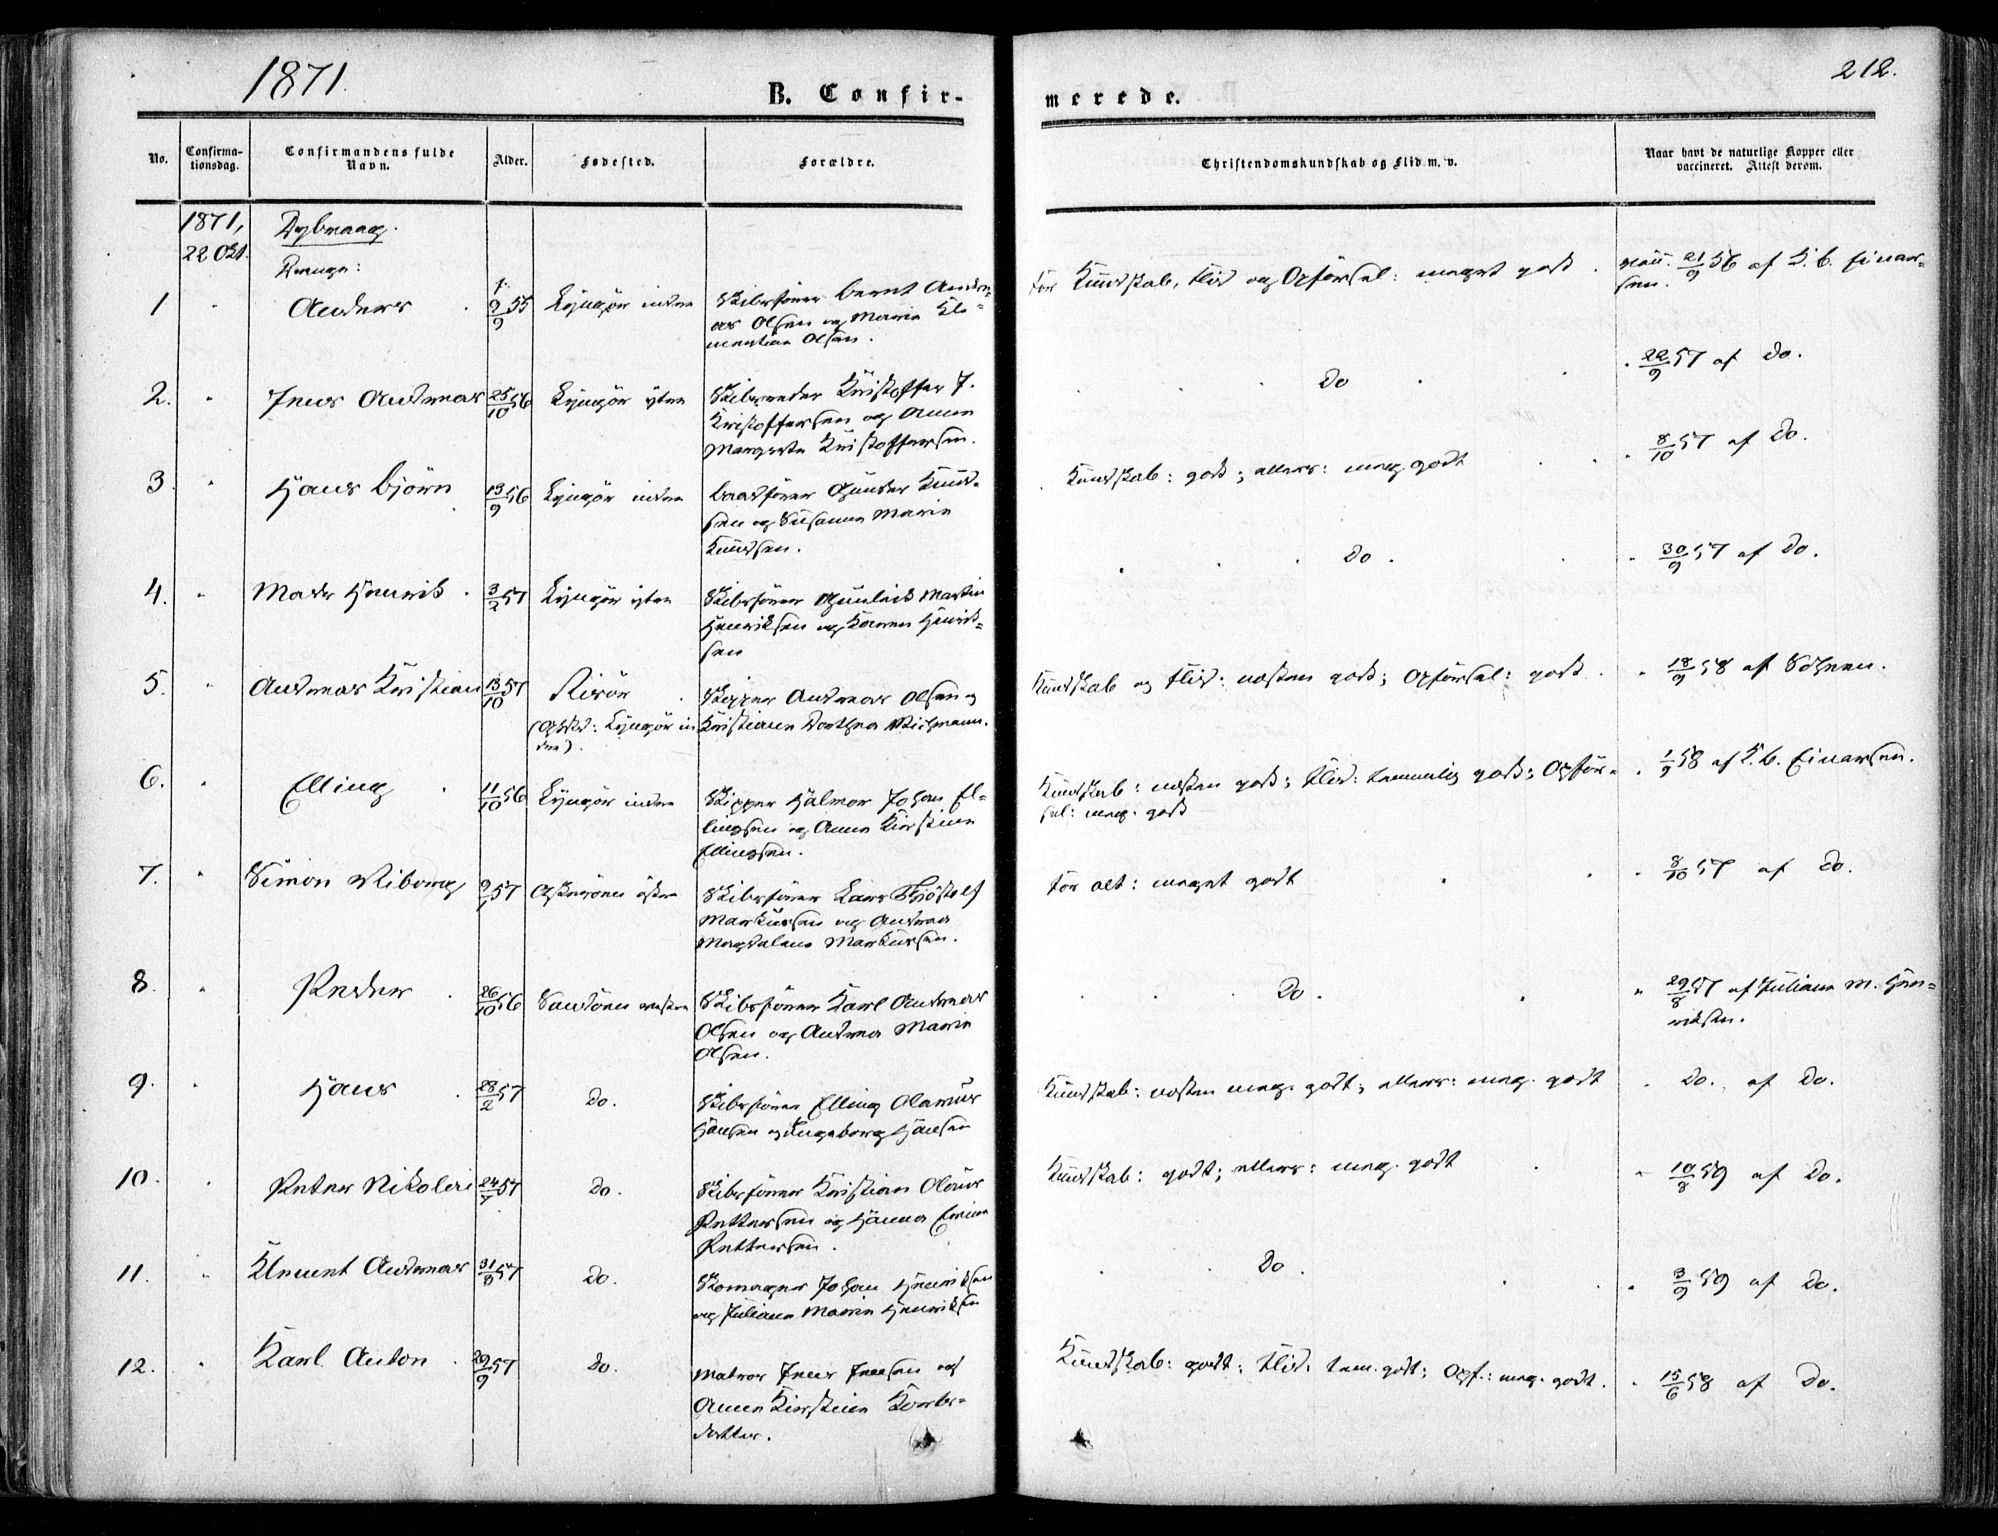 1871.
B. Confir-
merede.
212.
No.
Confirma-
tionsdag.
Confirmandens fulde
Navn.
Alder.
Fødested.
Forældre.
Christendomskundskab og Flid m. v.
Naar havt de naturlige Kopper eller
vaccineret. Attest derom.
1871,
22 Okt.
Dybvaag.
Drenge:
1
Anders
9/9 55
Lyngör indre
Skibsförer Bernt Andre-
as Olsen og Maria Kle-
mentine Olsen.
For Kundskab, Flid og Opförsel: meget godt
vacc. 21/9 56 af K. B. Einar-
sen.
2.
Jens Andreas
25/10 56
Lyngör ytre
Skibsreder Kristoffer J.
Kristoffersen og Anne
Margrete Kristoffersen.
Do
22/9 57 af Do.
3
Hans Björn
13/9 56
Lyngör indre
Baadförer Gunder Knud-
sen og Susanne Marie
Knudsen.
Kundskab: godt; ellers: meg. godt
8/10 57 af Do.
4.
Mads Henrik
3/2 57
Lyngör ytre
Skibsförer Gunleik Martin
Henriksen og Karen Henrik-
sen
Do.
30/9 57 af Do.
5.
Andreas Kristian
13/10 57
Risör
(Opholdst: Lyngör in-
dre).
Skipper Andreas Olsen og
Kristiane Dorthea Wichmann.
Kundskab og Flid: næsten godt; Opförsel: godt
18/9 58 af
6.
Elling
11/10 56
Lyngör indre
Skipper Hjalmar Johan El-
lingsen og Anne Kirstine
Ellingsen.
Kundskab: næsten godt; Flid: temmelig godt; Opför-
sel: meg. godt
1/9 58 af K. B. Einarsen.
7.
Simon Viborg
9/1 57
Askeröen östre
Skibsförer Lars Thjostolf
Markussen og Andrea
Magdalene Markussen.
For alt: meget godt
8/10 57 af Do.
8.
Peder
26/10 56
Sandöen vestre
Skibsförer Karl Andreas
Olsen og Andrea Marie
Olsen.
Do.
29/8 57 af Juliane M. Hen-
riksen.
9.
Hans
28/2 57
Do.
Skibsförer Elling Olaus
Hansen og Ingeborg Hansen
Kundskab: næsten meg. godt; ellers: meg. godt
Do. af Do.
10.
Peter Nikolai
24/7 57
Do.
Skibsförer Kristian Olaus
Pettersen og Hanna
Pettersen.
Kundskab: godt; ellers: meg. godt
10/8 59 af Do.
11.
Klement Andreas
57
Do.
Skomager Johan Henriksen
og Juliane Marie Henriksen
Do.
3/9 59 af Do.
12.
Karl Anton
29/9 57
Do.
Matros Jens Jensen og
Anne Kirstine
datter.
Kundskab: godt; Flid: tem. godt; Opf.: meg. godt.
15/6 58 af Do.